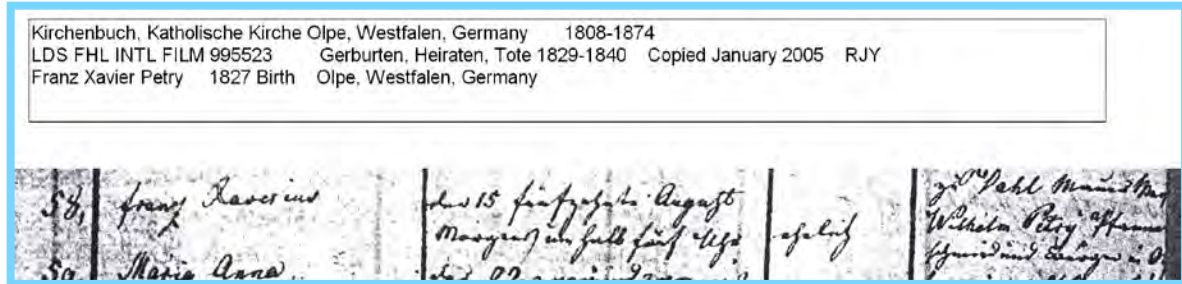 Kirchenbuch, Katholische Kirche Olpe, Westfalen, Germany 1808-1874
LDS FHL INTL FILM 995523 Gerburten, Heiraten, Tote 1829-1840 Copied January 2005 RJY
Franz Xavier Petry 1827 Birth Olpe, Westfalen, Germany
58, franz Xaverius
den 15 fünfzehnte August
Morgens um halb fünf Uhr
ehelich
zu Dahl
Wilhelm Petry
schmied und bürger in
59 Maria Anna
den 22